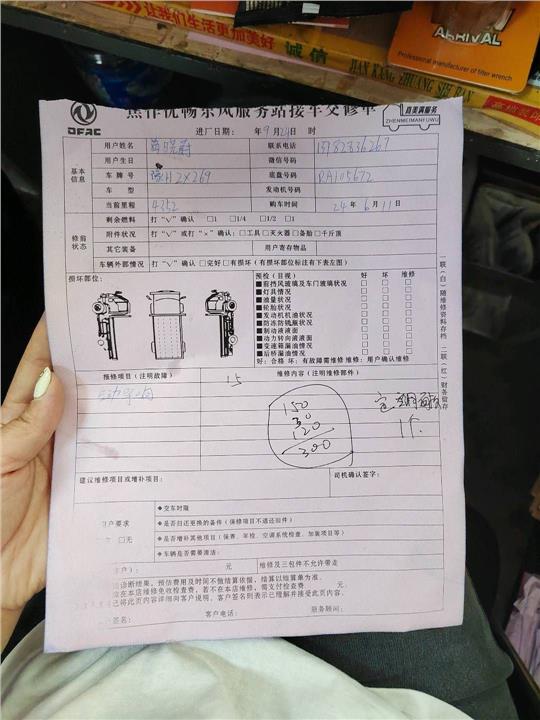 让我们生活更加美好
诚信
JIAN KANG ZHUANG SHI BAN
ARRIVAL
Professional manufacturer of filter wrench
DFAC
焦作优畅东风服务站接车交修单
真美满服务
ZHENMEIMANFUWU
进厂日期: 年9月24日 时
基本信息
用户姓名 联系电话
用户生日 微信号码
车牌号 底盘号码 RA105672
车型 发动机号码
当前里程 4252 购车时间 24年6月11日
修前状态
剩余燃料 打"√"确认 □1 □1/4 □1/2 □1
附件状况 打"√"或打"×"确认:□工具□灭火器□备胎□千斤顶
其它装备 用户寄存物品
车辆外部情况 打"√"确认□完好□有损坏(有损坏部位标注有下表左图)
损坏部位:
预检(目视) 好 坏 维修
■前挡风玻璃及车门玻璃状况
■灯具情况
■油量状况
■轮胎状况
■发动机机油状况
■防冻防锈液状况
■制动液液面
■动力转向液液面
■变速箱漏油情况
■后桥漏油情况
好:合格 坏:有故障需维修 维修:用户确认维修
报修项目(注明故障) 维修内容(注明维修部件)
15
150
30
120
300
建议维修项目或增补项目: 司机确认签字:
户要求
□无
◆交车时限
◆是否归还更换的备件(保修项目不退还旧件)
◆是否增补其他项目(保养、年检、空调系统检查、加装项目等)
◆车辆是否需要清洁:
元 维修及三包件不允许带走
诊断结果,预估费用及时间不做结算依据,结算以结算单为准。
在本店维修免收检查费,若不在本店维修,需支付检查费 元。
已将此页内容详细向客户说明,客户签名则表示已理解并接受此页内容。
签名: 客户电话: 服务顾问:
一联(白)随维修资料存档 二联(红)财务留存